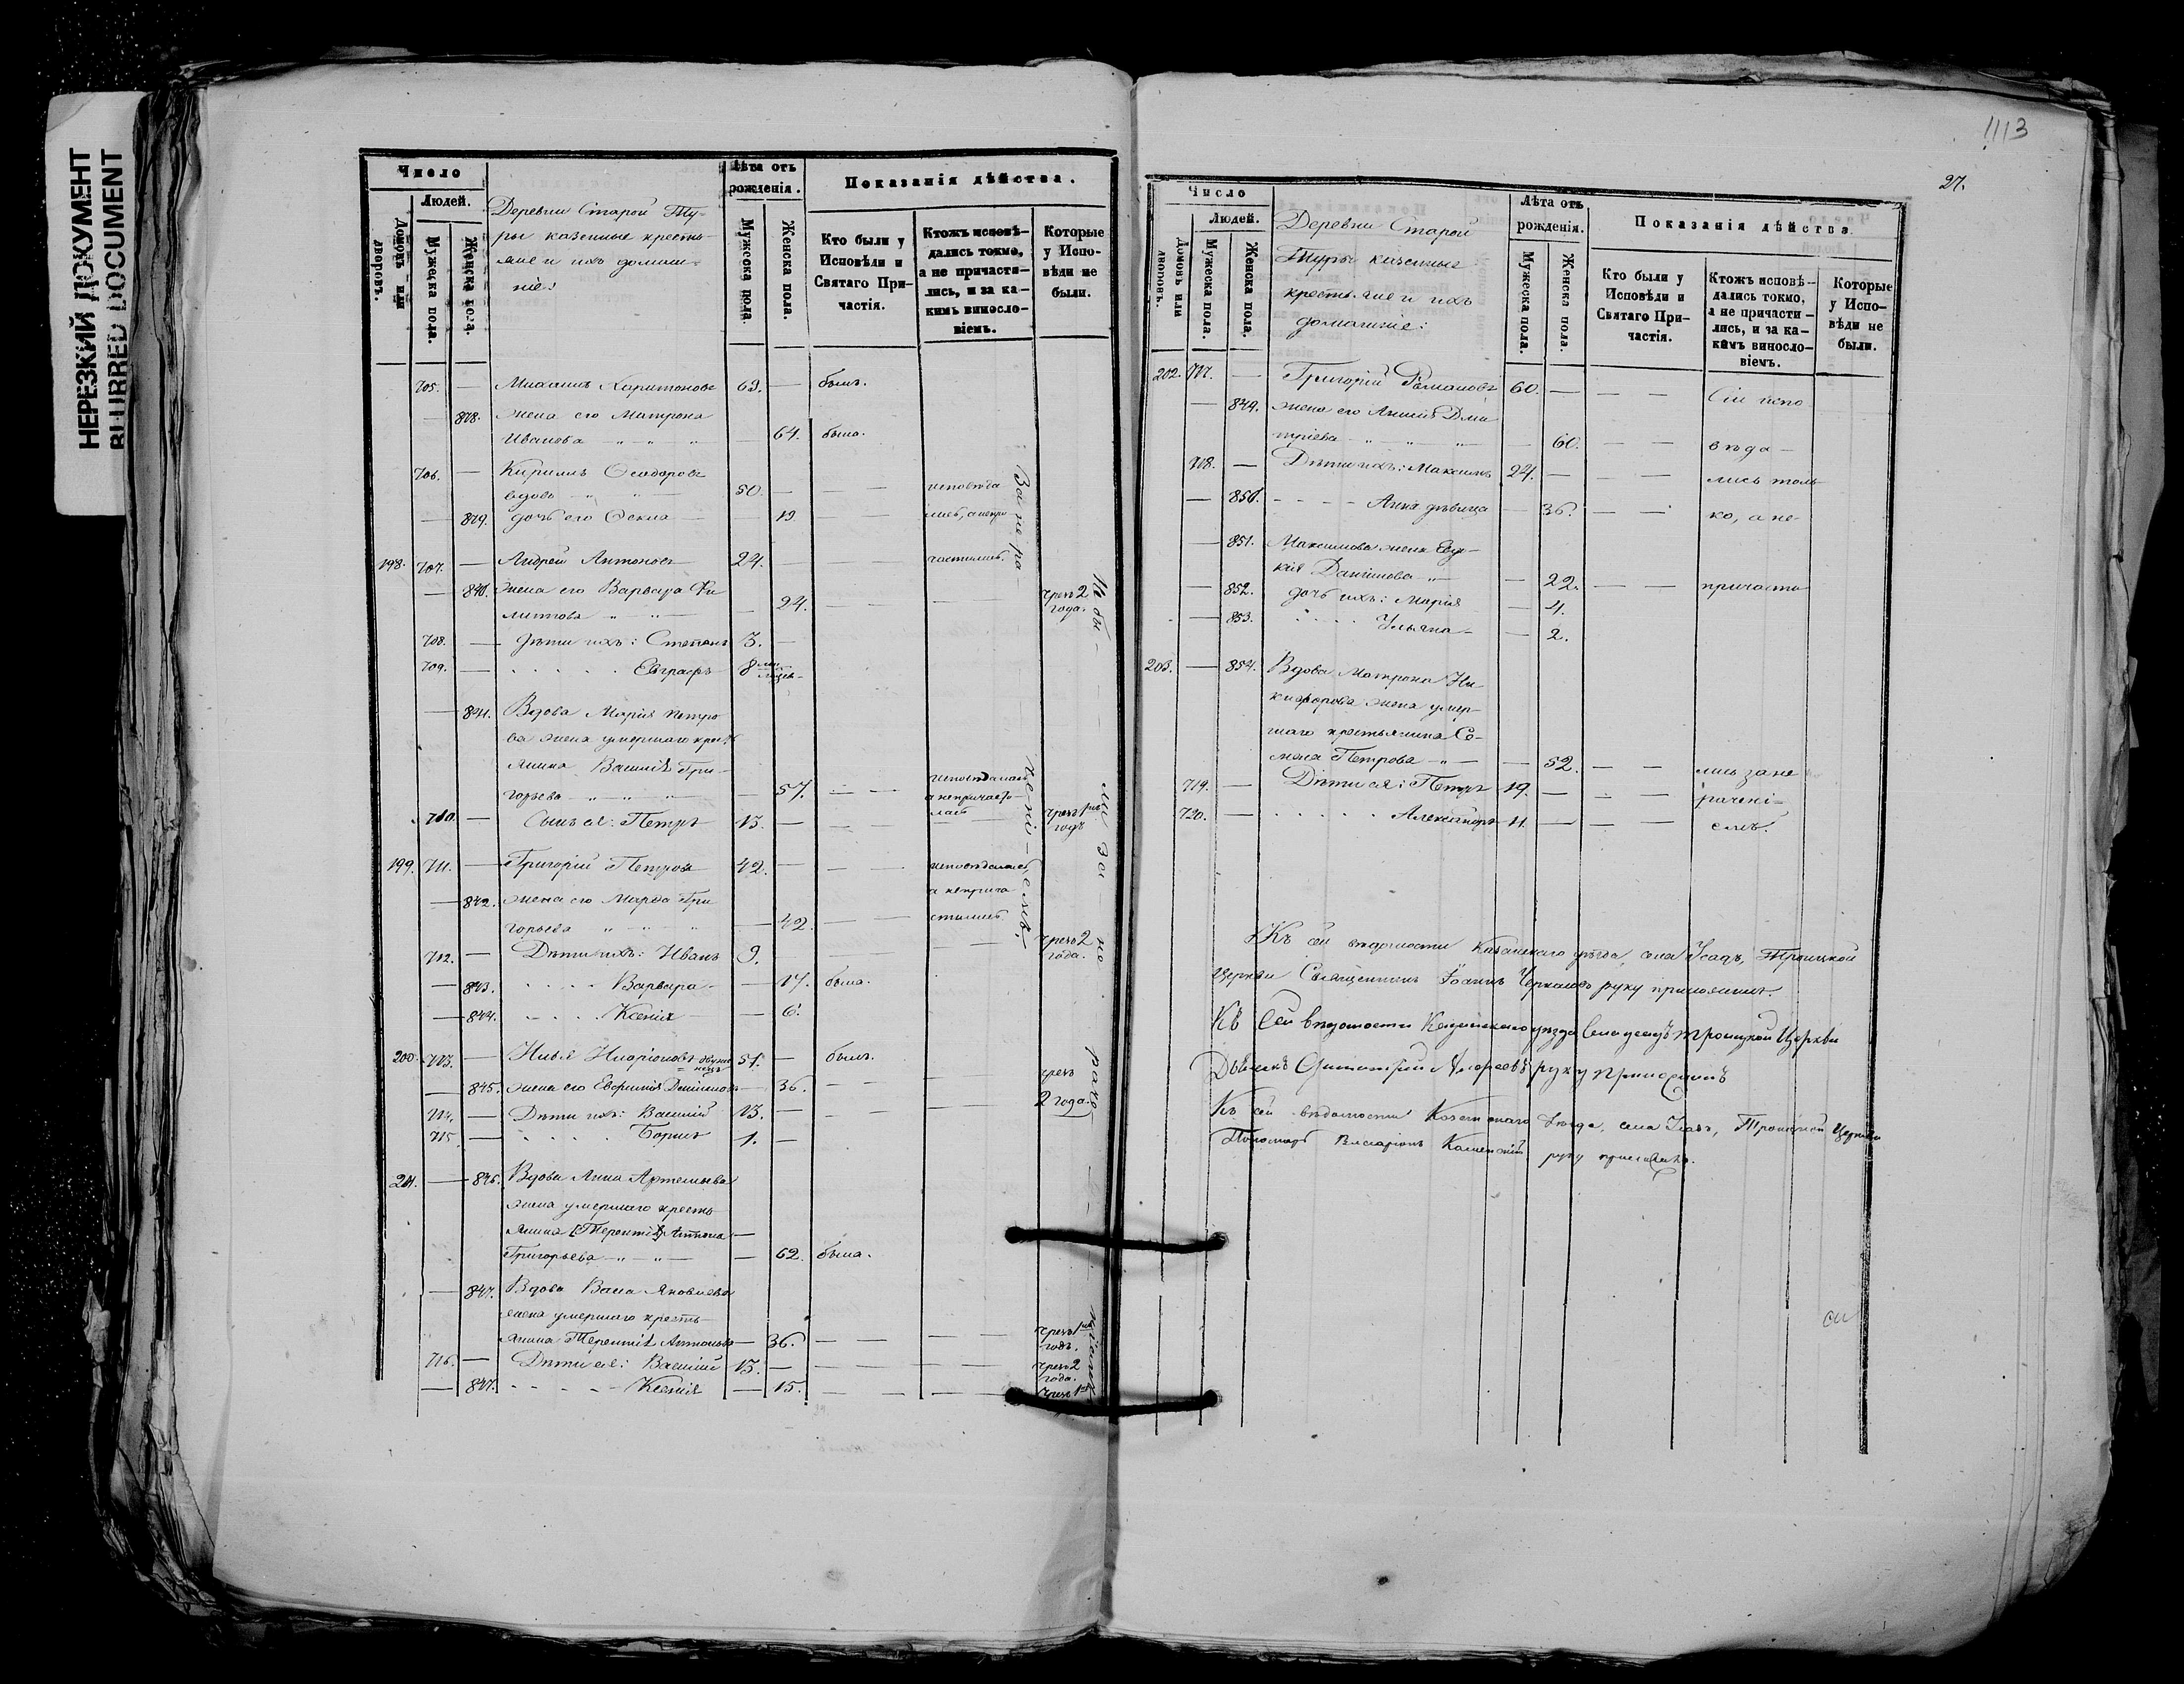 НЕРЕЗКИЙ ДОКУМЕНТ
BLURRED DOCUMENT
Число
Людей.
Домовъ или дворовъ.
Мужеска пола.
Женска пола.
Деревни Старой Ту-
ры казенные кресть-
яне и ихъ домаш-
ніе:
Лѣта отъ рожденія.
Мужеска пола.
Женска пола.
Показанія дѣйства.
Кто были у Исповѣди и Святаго При-частія.
Ктожъ исповѣ-дались токмо, а не причасти-лись, и за ка-кимъ винословіемъ.
Которые у Испо-вѣди не были.
705. — Михаилъ Харитоновъ 63. — былъ.
— 838. жена его Матрона
Иванова — 64. была.
706. — Кириллъ Ѳеодоровъ
вдовъ 50. — исповѣда
— 839. дочь его Ѳекла — 19. — лись, а непри
198. 707. — Андрей Антоновъ 24. — частились.
— 840. жена его Варвара Фи
липпова — 24. — чрезъ 2 года.
708. — Дѣти ихъ: Степанъ 3. —
709. — Евграфъ 8 мѣсяц.
— 841. Вдова Марія Петро
ва жена умершаго кресть
янина Василія Гри-
горьева — 57. — исповѣдалась а непричасти-лась
710. — Сынъ ея: Петръ 13. — чрезъ 1нъ годъ
199. 711. — Григорій Петровъ 42. — исповѣдались
— 842. жена его Марѳа Гри а неприча
горьева — 42. — стились
712. — Дѣти ихъ: Иванъ 9. — чрезъ 2 года.
— 843. Варвара — 17. была.
— 844. Ксенія — 6.
200. 713. — Илья Иларіоновъ 51. — былъ.
— 845. жена его Евфимія Данилова — 36. — чрезъ
714. — Дѣти ихъ: Василій 13. — 2 года.
715. — Борисъ 1. —
201. — 846. Вдова Анна Артемьева
жена умершаго кресть
янина Терентія Антона
Григорьева — 62. была.
— 847. Вдова Васса Яковлева
жена умершаго кресть-
янина Терентія Антонова — 36. — чрезъ 1нъ годъ.
716. — Дѣти ея: Василій 13. — чрезъ 2 года.
— 847. Ксенія — 15. — чрезъ 1нъ
За не ра-
ченi-
емъ.
Не бы-
ли за
не
раче
ніемъ
1113
27.
Число
Людей.
Домовъ или дворовъ.
Мужеска пола.
Женска пола.
Деревни Старой
Туры казенные
крестьяне и ихъ
домашніе:
Лѣта отъ рожденія.
Мужеска пола.
Женска пола.
Показанія дѣйства
Кто были у Исповѣди и Святаго При-частія.
Ктожъ исповѣ-дались токмо, а не причасти-лись, и за ка-кимъ винословіемъ.
Которые у Испо-вѣди не были.
202. 717. — Григорій Романовъ 60. — Сіи испо
— 849. жена его Анна Дми
тріева — 60. — вѣда-
718. — Дѣти ихъ: Максимъ 24. — лись толь
— 850. Анна дѣвица — 36. — ко, а не-
— 851. Максимова жена Евдо-
кія Данилова — 22. — причасти
— 852. дочь ихъ: Марія — 4.
— 853. Ульяна — 2.
203. — 854. Вдова Матрона Ни-
кифорова жена умер-
шаго крестьянина Се-
мена Петрова — 52. — лись за не
719. — Дѣти ея: Петръ 19. — рачені-
720. — Александръ 11. — емъ.
Къ сей вѣдомости Казанскаго уѣзда, села Усадъ, Троицкой
Церкви Священникъ Іоаннъ руку приложилъ.
Къ сей вѣдомости Казанскаго уѣзда села Усадъ Троицкой Церкви
Дьячекъ Димитрій Андреевъ руку приложилъ
Къ сей вѣдомости Казанскаго уѣзда, села Усадъ, Троицкой Церкви
Пономарь Виссаріонъ Каменскій руку приложилъ.